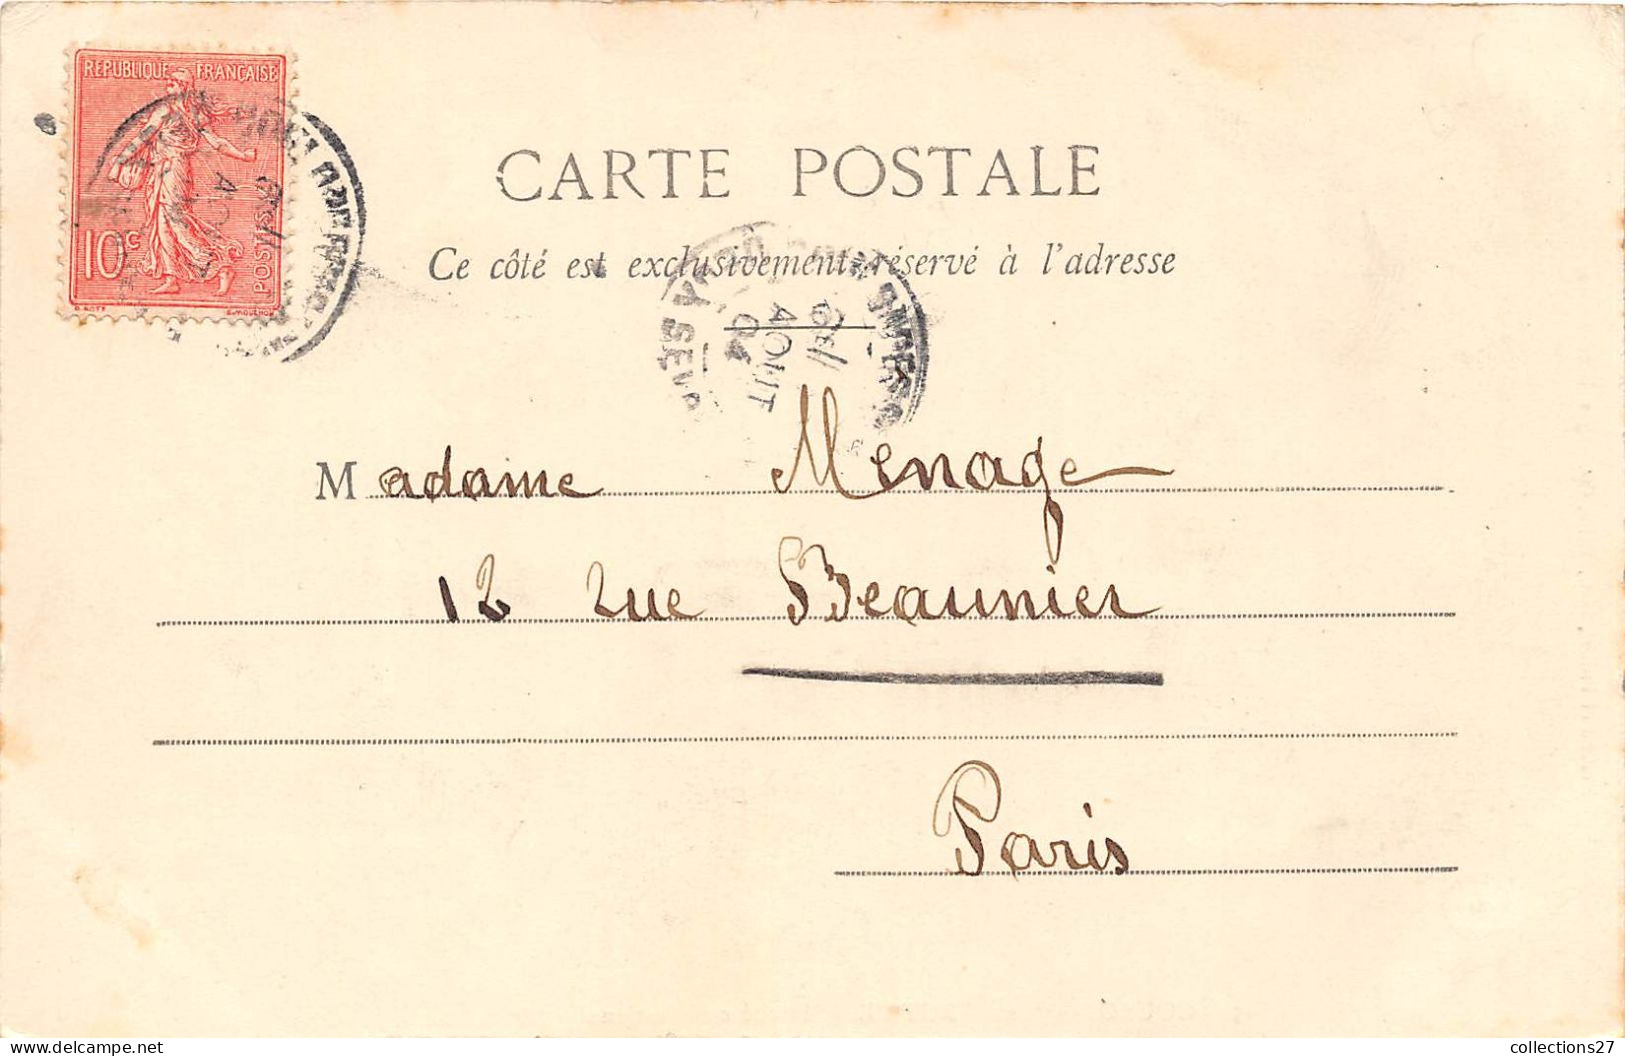 REPUBLIQUE FRANCAISE
10c
POSTES
E. MOUCHON
CARTE POSTALE
Ce côté est exclusivement réservé à l'adresse
AOUT
04
Madame Menage
12 rue Beaunier
Paris
collections27